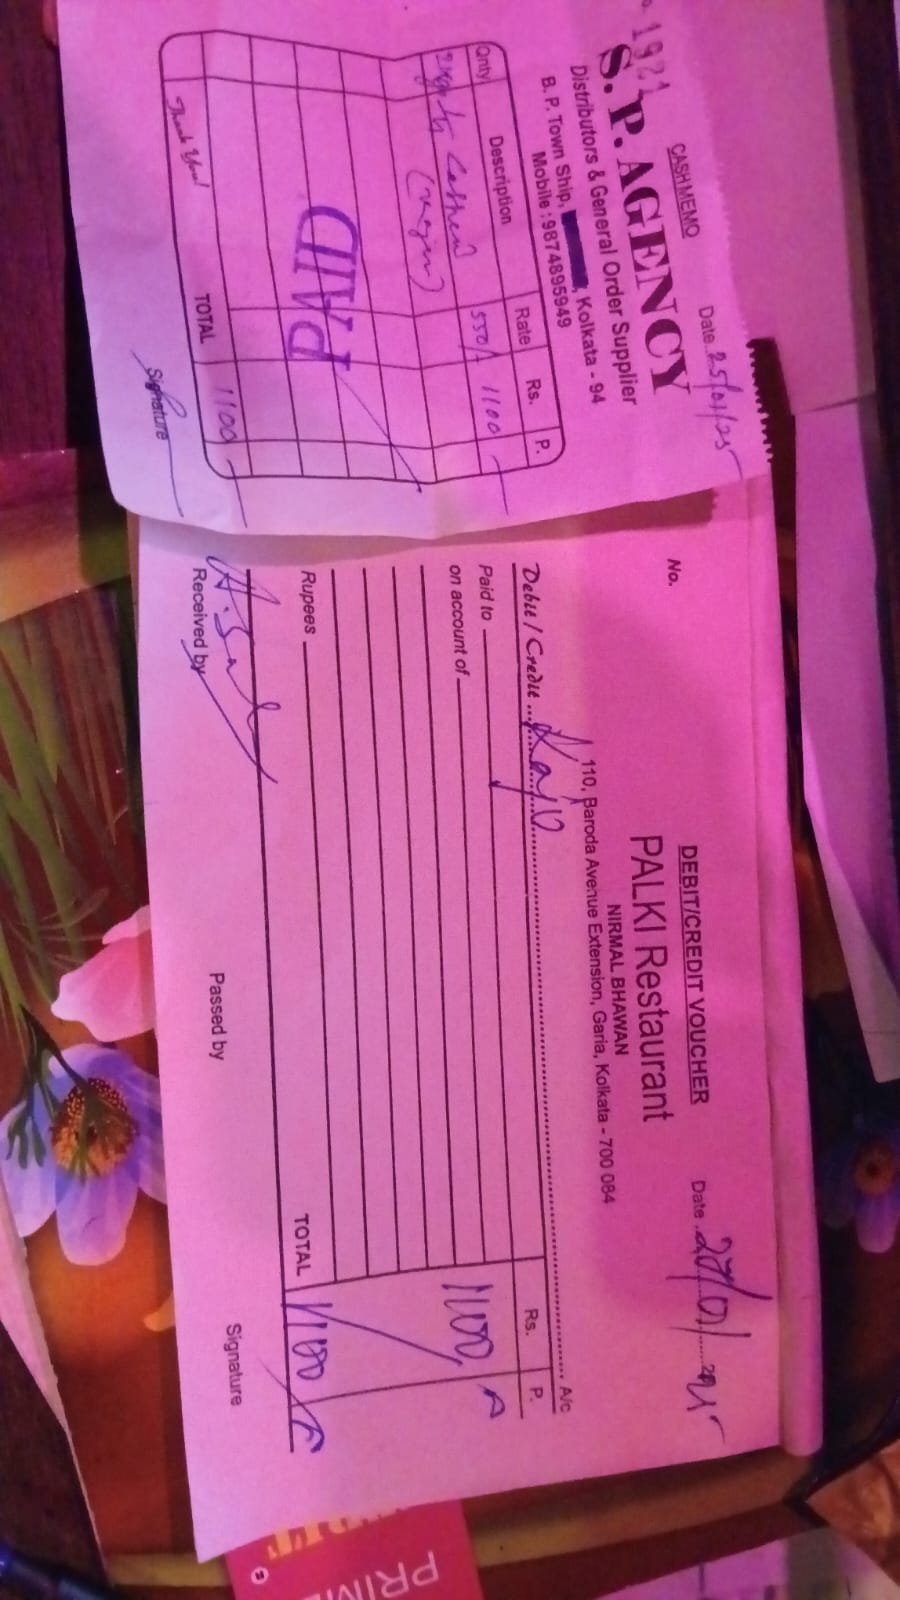 1921
CASH MEMO
Date 25/01/25
S. P. AGENCY
Distributors & General Order Supplier
B. P. Town Ship, Kolkata - 94
Mobile : 9874895949
Qnty Description Rate Rs. P.
550/- 1100
PAID
TOTAL 1100
Thank You!
Signature
DEBIT/CREDIT VOUCHER
No.
Date
PALKI Restaurant
NIRMAL BHAWAN
110, Baroda Avenue Extension, Garia, Kolkata - 700 084
Debit / Credit Kaju A/c
Rs. P.
Paid to
on account of
1100
Rupees
TOTAL 1100
Received by Passed by Signature